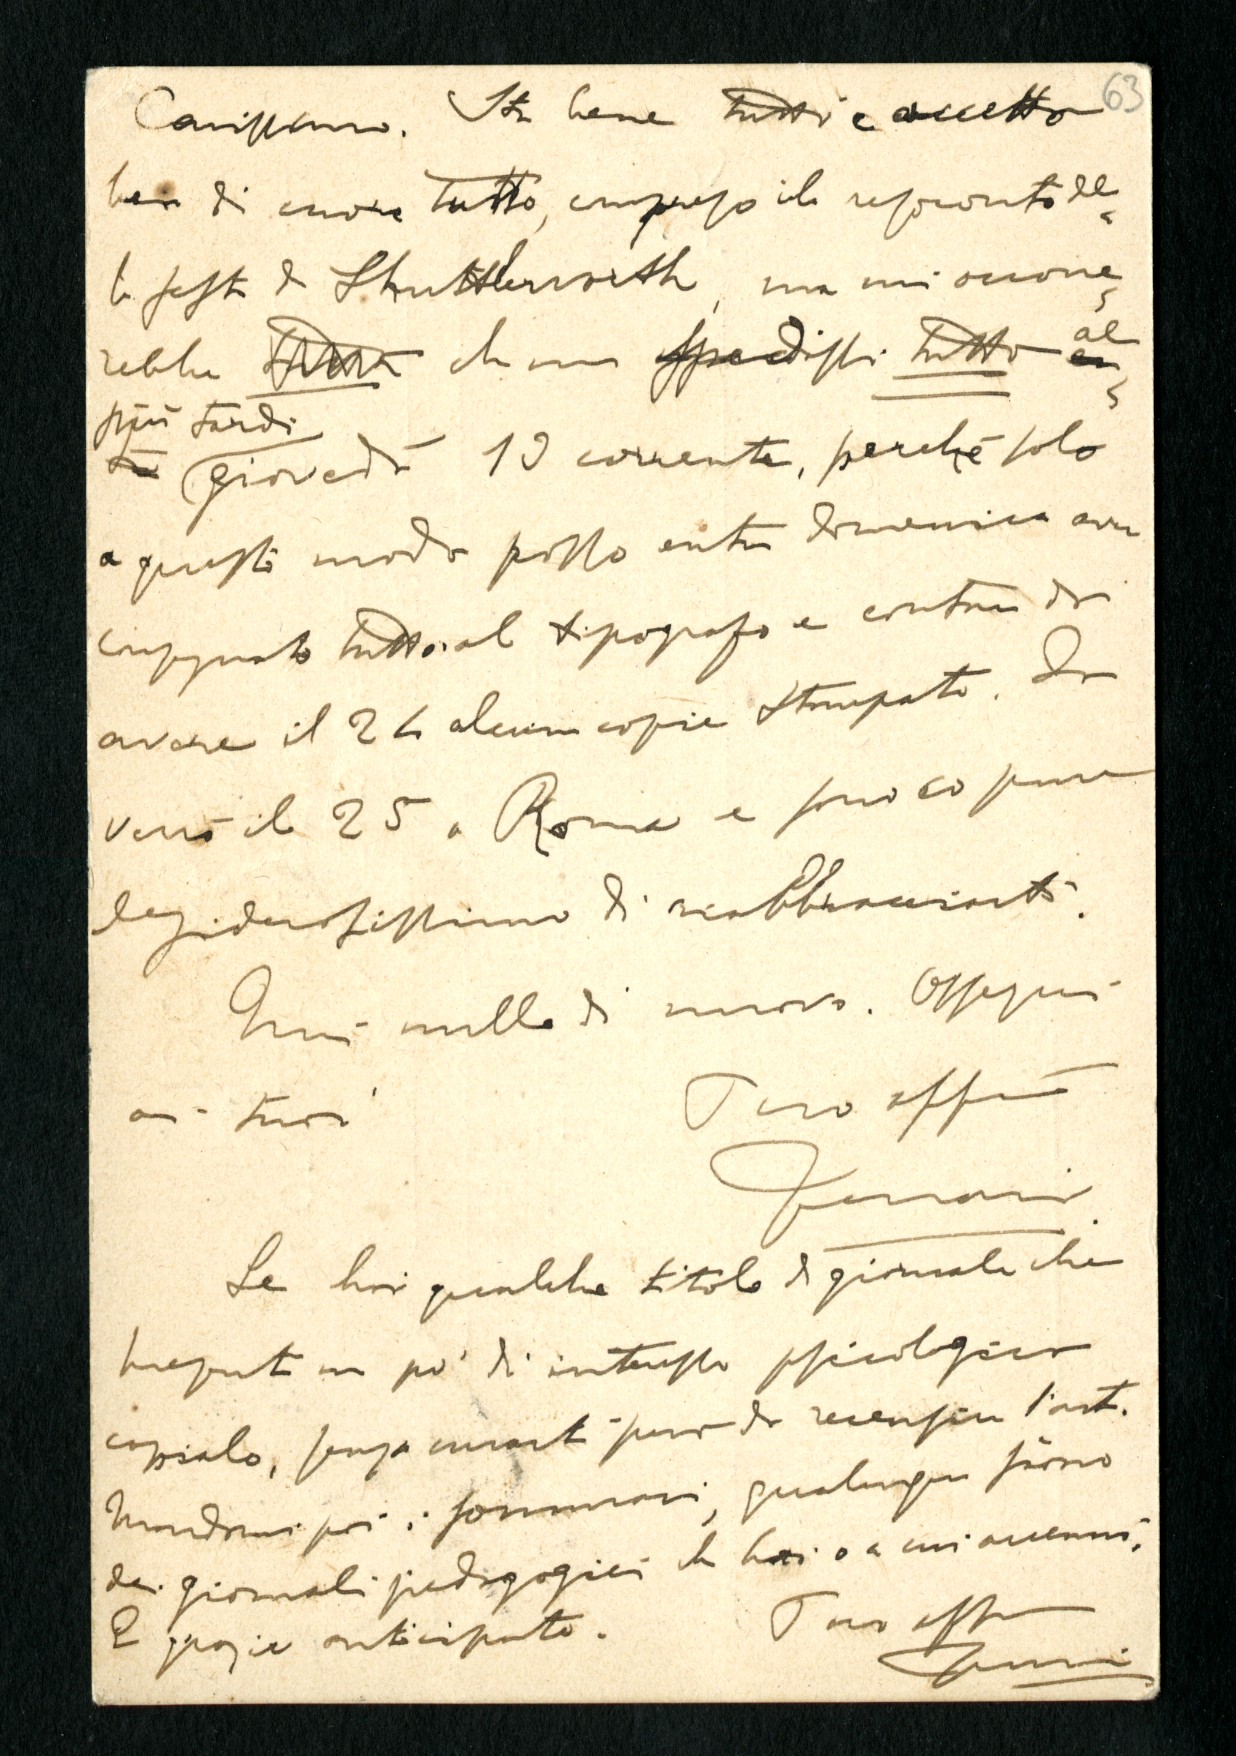 63
Carissimo. Sta bene tutti e accetto
ben di cuore tutto, compreso il resoconto del
la festa di Shuttleworth, ma mi occorre
rebbe che mi spedissi tutto al
più tardi
giovedì 19 corrente, perché solo
a questo modo posso entro domenica aver
consegnato tutto al tipografo e contare di
avere il 24 alcune copie stampate. Io
verrò il 25 a Roma e sono io pure
desiderosissimo di riabbracciarti.
mille di nuovo. Ossequi
ai tuoi Tuo affmo
Ferrari
Se hai qualche titolo di giornale che
presenti un po' di interesse psicologico
copialo, senza curarti pure di recensire l'art.
Mandami poi i sommari, qualunque siano
dei giornali pedagogici che hai o a cui accenni.
E grazie anticipate. Tuo affmo
Ferrari